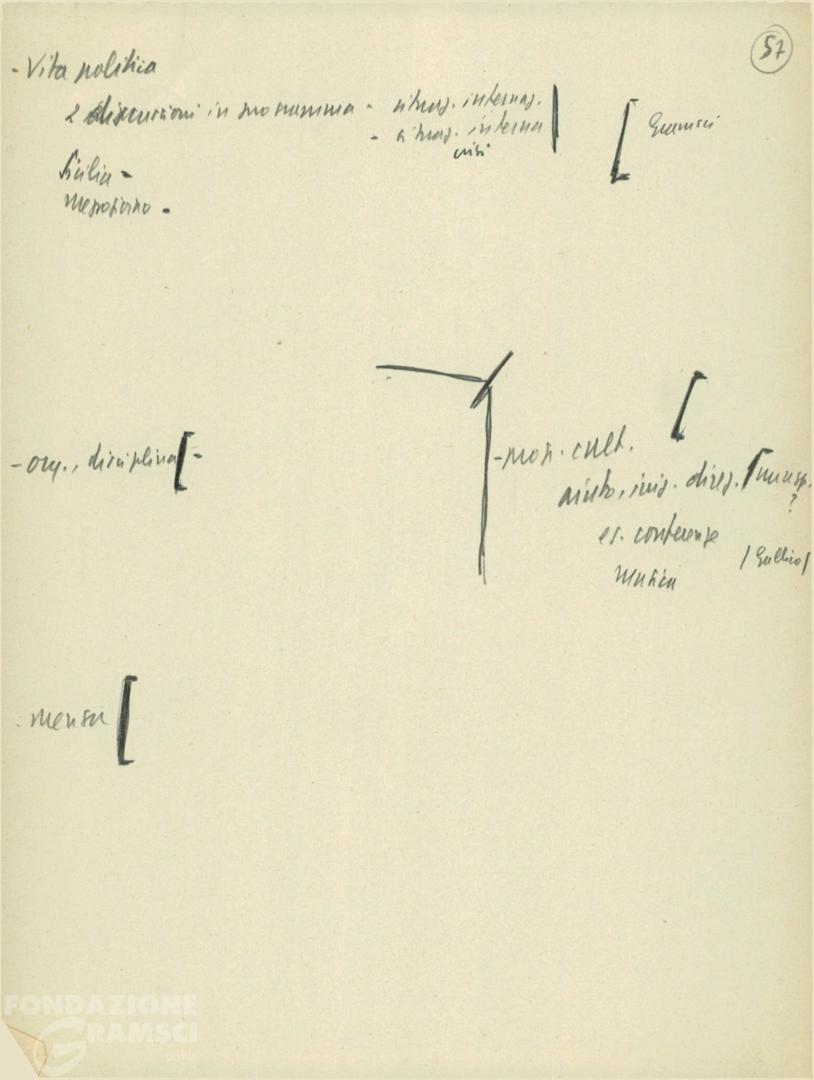 57
- Vita politica
2 discussioni in programma - situaz. internaz.
- situaz. interna
crisi
Gramsci
Sicilia -
Mezzogiorno -
- org., disciplina [ -
- prop. cult.
aiuto, iniz. direz.
?
es. conferenze
musica
- mensa [
FONDAZIONE
GRAMSCI
onlus